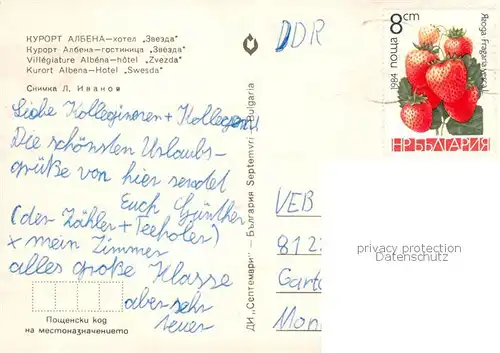 КУРОРТ АЛБЕНА—хотел „Звезда"
Курорт Албена—гостиница „Звезда"
Villégiature Albéna—hôtel „Zvezda"
Kurort Albena—Hotel „Swesda"
Снимка Л. Иванов
Liebe Kolleginnen + Kollegen!
Die schönsten Urlaubs-
grüße von hier sendet
Euch Günther
(der Zähler + Teeholer)
x mein Zimmer
alles große Klasse
aber sehr
teuer
Пощенски код
на местоназначението
ДИ „Септември" — България Septemvri Bulgaria
DDR
поща 8 cm
1984
Ягода Fragaria vesca L.
НР БЪЛГАРИЯ
VEB
812
privacy protection
Datenschutz
Gart
Mon